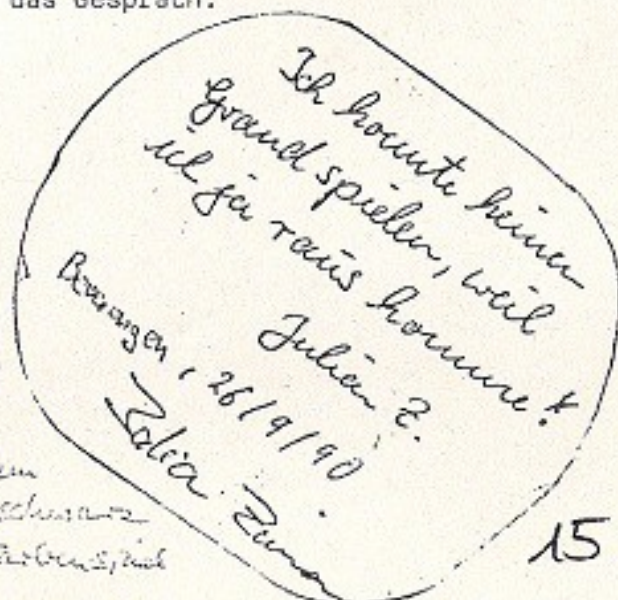 das Gespräch.
Ich konnte keinen
Grand spielen, weil
ich ja raus komme!
Julian Z.
26/9/90
schwarz
15